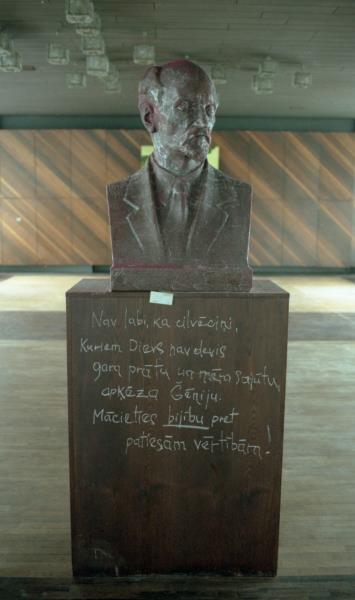 Nav labi, ka cilvēciņi,
kuriem Dievs nav devis
gara prātu un mēra sajūtu,
apķēza Ģēniju.
Mācieties bijību pret
patiesām vērtībām!